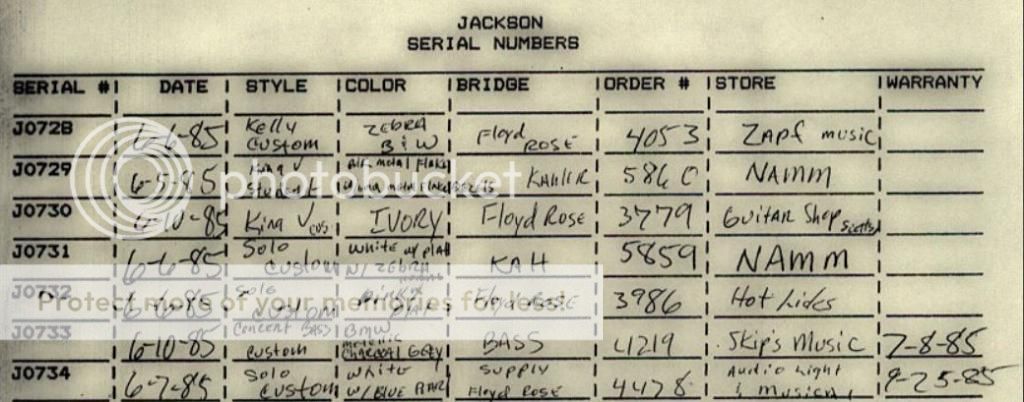 JACKSON
SERIAL NUMBERS
SERIAL # DATE STYLE COLOR BRIDGE ORDER # STORE WARRANTY
J0728 6-6-85 Kelly Custom ZEBRA B/W Floyd Rose 4053 ZAPF music
J0729 6-5-85 King V Student metal Flake KAHLER 5860 NAMM
J0730 6-10-85 King V IVORY Floyd Rose 3779 Guitar Shop
J0731 6-6-85 Solo Custom white W/ ZEBRA KAH 5859 NAMM
J0732 6-6-85 Solo Custom Floyd Rose 3986 Hot Licks
J0733 6-10-85 Concert Bass Custom BMW metallic Charcoal Grey BASS 4219 Skip's Music 7-8-85
J0734 6-7-85 Solo Custom white w/ BLUE supply Floyd Rose 4478 Audio Light & Musical 9-25-85
photobucket
Protect more of your memories for less!